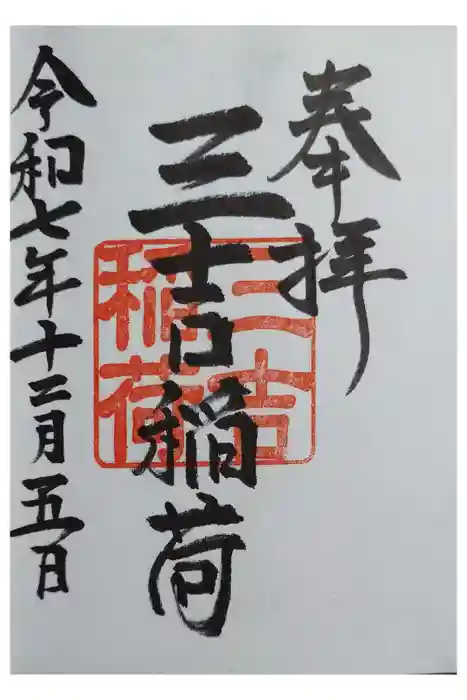 奉拝
三吉稲荷
三吉
稲荷
令和七年十二月五日